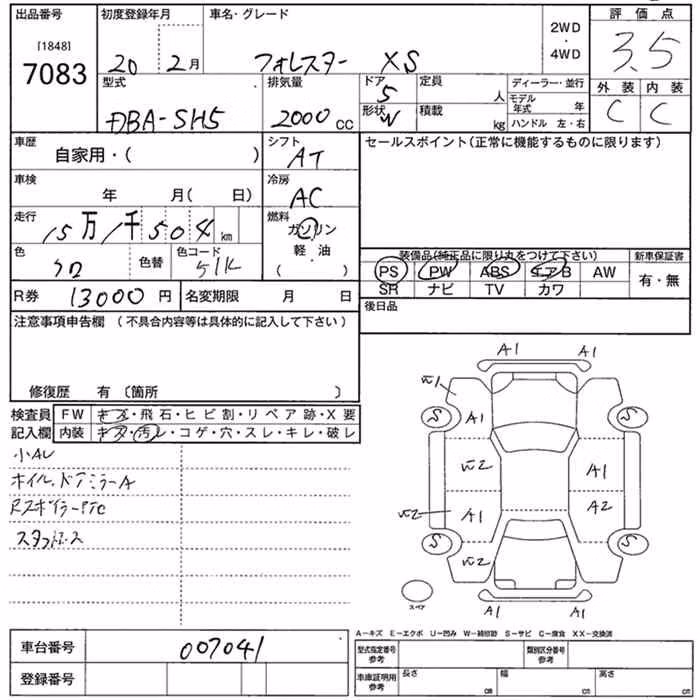 出品番号 初度登録年月 車名・グレード 評価点
[1848]
7083
20 2月 フォレスター XS
2WD
・
4WD
3.5
型式 排気量 ドア 定員 ディーラー・並行 外装 内装
DBA-SH5 2000cc 5 人 モデル年式 年 C C
形状 W 積載 kg ハンドル 左・右
車歴 シフト セールスポイント(正常に機能するものに限ります)
自家用・( ) AT
車検 冷房
年 月( 日) AC
走行 燃料
15万1千504km ガソリン
軽・油
( )
色 色替 色コード
クロ 51K
装備品(純正品に限り丸をつけて下さい) 新車保証書
PS PW ABS エアB AW 有・無
SR ナビ TV カワ
R券 13000円 名変期限 月 日
後日品
注意事項申告欄 (不具合内容等は具体的に記入して下さい)
修復歴 有 〔箇所 〕
検査員 FW キズ・飛石・ヒビ割・リペア跡・X要
記入欄 内装 キズ・汚レ・コゲ・穴・スレ・キレ・破レ
小AU
ホイル、ドアミラーA
RスポイラーPTC
A1 A1
A1
S S
A1
A2
A1
S S
スペア
A1 A1
A-キズ E-エクボ U-凹み W-補修跡 S-サビ C-腐食 XX-交換済
車台番号 007041
登録番号
型式指定番号 参考 類別区分番号 参考
車庫証明用 参考 長さ cm 幅 cm 高さ cm